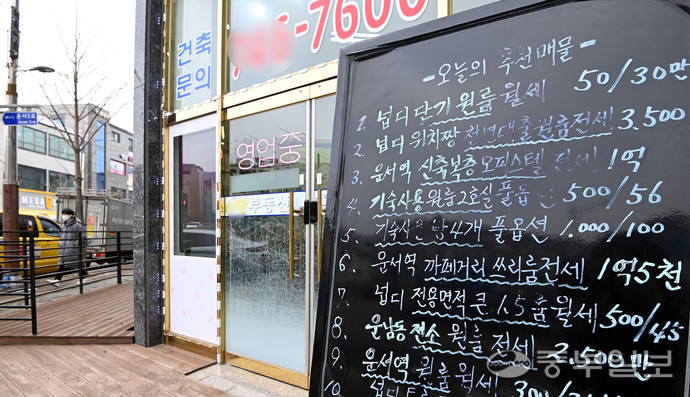 건축
문의
-7600
영업중
부동산
-오늘의 추천매물-
1. 넙디 단기 원룸 월세 50/30만
2. 넙디 위치짱 청년대출원룸전세 3.500
3. 운서역 신축복층오피스텔 전세 1억
4. 기숙사용원룸2호실풀옵션 500/56
5. 방4개 풀옵션 1.000/100
6. 운서역 까페거리 쓰리룸전세 1억5천
7. 넙디 전용면적 큰 1.5룸월세 500/45
8. 운남동 전소 원룸 전세 3.500만
9. 운서역 원룸 월세
10. 넙디
중부일보